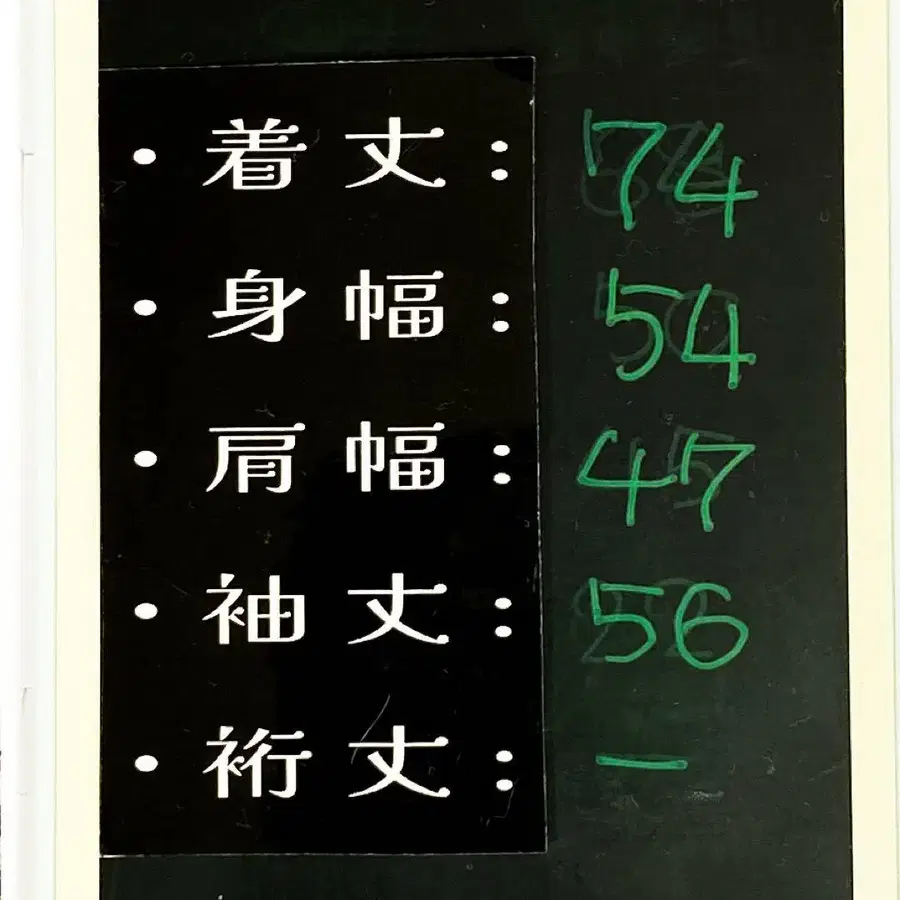 ・着丈：74
・身幅：54
・肩幅：47
・袖丈：56
・裄丈：－